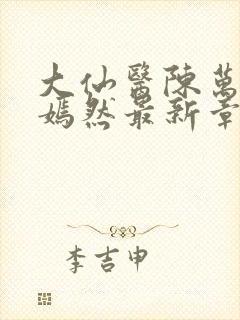 大仙醫陳萬
嫣然最新章
李吉申